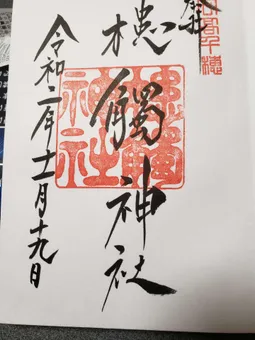 高千穂
槵觸神社
槵觸神社
令和二年十一月十九日